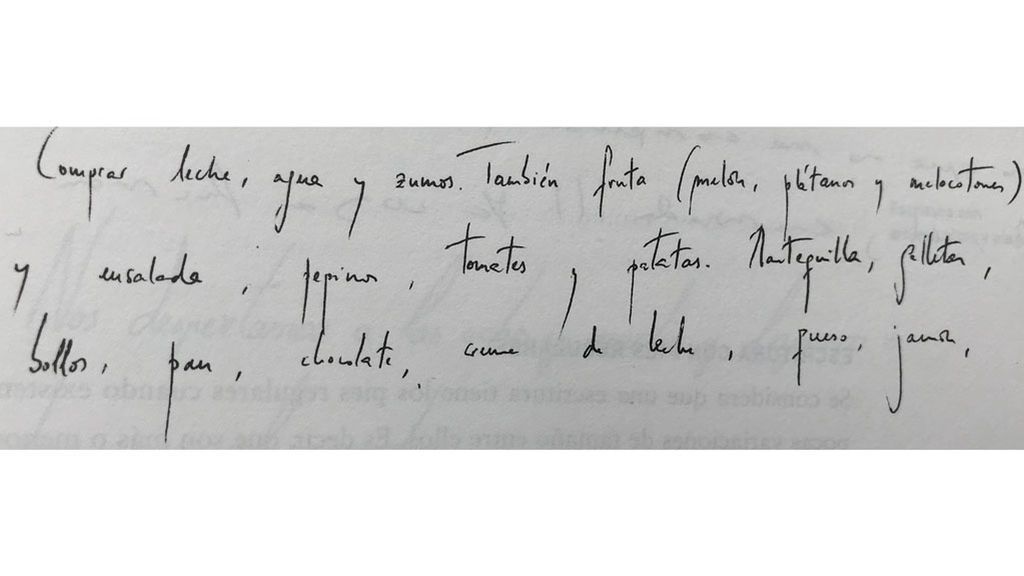 Comprar leche, agua y zumos. También fruta (melón, plátanos y melocotones)
y ensalada, pepinos, tomates y patatas. Mantequilla, galletas,
bollos, pan, chocolate, crema de leche, queso, jamón,